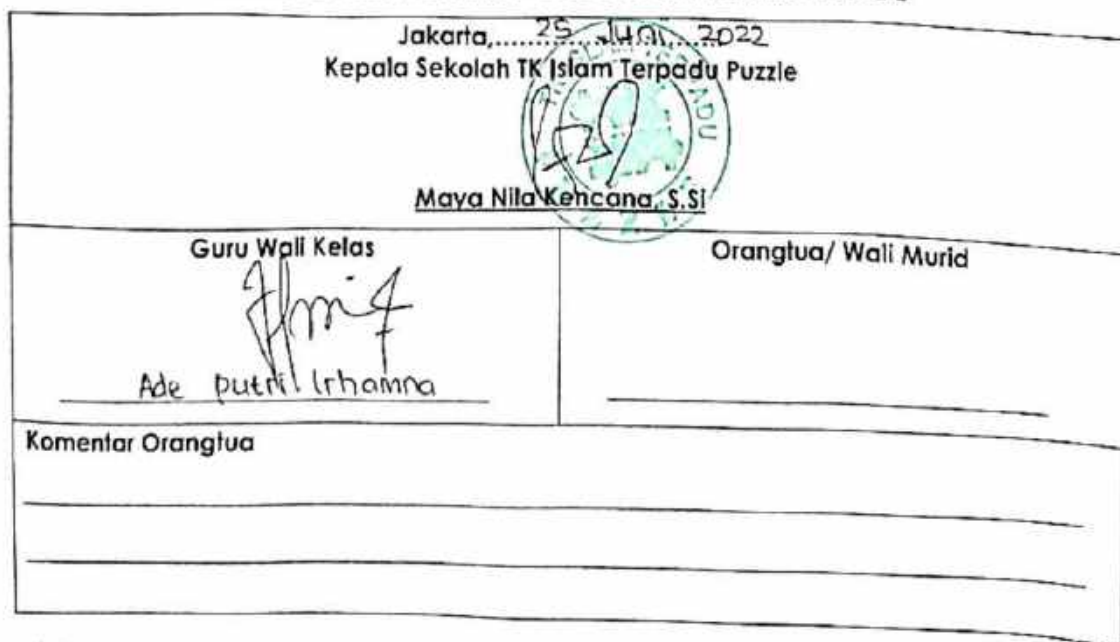 Jakarta,..... 25 Juni 2022
Kepala Sekolah TK Islam Terpadu Puzzle
Maya Nila Kencana, S.Si
Guru Wali Kelas
Ade putri Irhamna
Orangtua/ Wali Murid
Komentar Orangtua